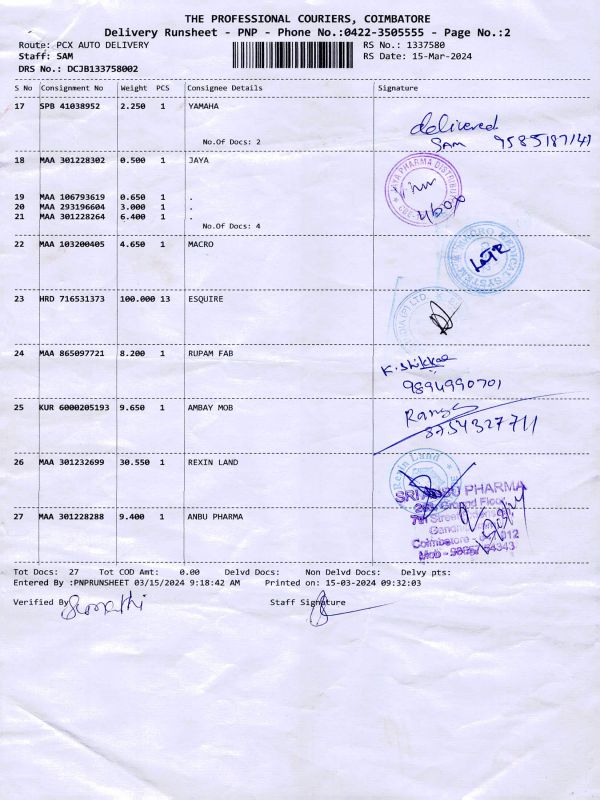 THE PROFESSIONAL COURIERS, COIMBATORE
Delivery Runsheet - PNP - Phone No.:0422-3505555 - Page No.:2
Route: PCX AUTO DELIVERY RS No.: 1337580
Staff: SAM RS Date: 15-Mar-2024
DRS No.: DCJB133758002
S No Consignment No Weight PCS Consignee Details Signature
17 SPB 41038952 2.250 1 YAMAHA
delivered
No.Of Docs: 2
SAM 9585187141
18 MAA 301228302 0.500 1 JAYA
19 MAA 106793619 0.650 1 .
20 MAA 293196604 3.000 1 .
21 MAA 301228264 6.400 1 .
No.Of Docs: 4
22 MAA 103200405 4.650 1 MACRO
MACRO MEDICAL SYSTEM
23 HRD 716531373 100.000 13 ESQUIRE
24 MAA 865097721 8.200 1 RUPAM FAB
9894990701
25 KUR 6000205193 9.650 1 AMBAY MOB
8754327711
26 MAA 301232699 30.550 1 REXIN LAND
Rexin Land
SRI ANBU PHARMA
Ground Floor
27 MAA 301228288 9.400 1 ANBU PHARMA
Coimbatore
Tot Docs: 27 Tot COD Amt: 0.00 Delvd Docs: Non Delvd Docs: Delvy pts:
Entered By :PNPRUNSHEET 03/15/2024 9:18:42 AM Printed on: 15-03-2024 09:32:03
Verified By Staff Signature